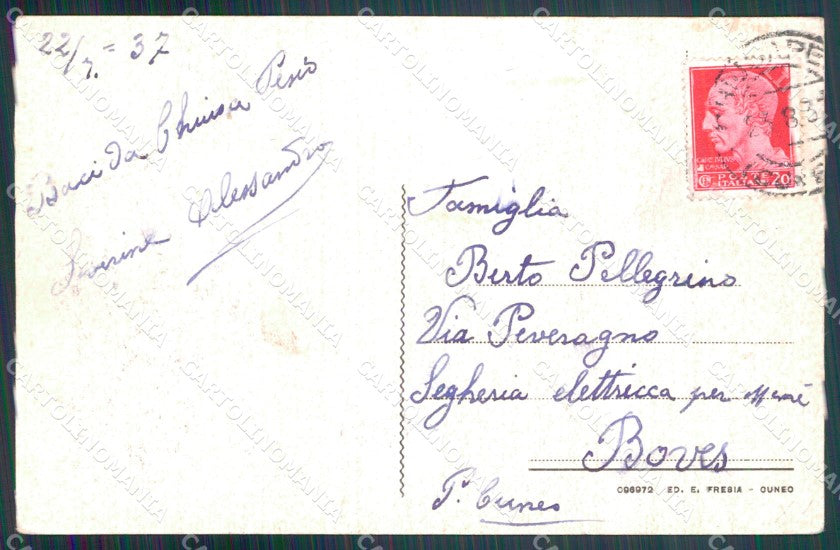 22/7. = 37
Baci da Chiusa Pesio
Severina Alessandro
Famiglia
Berto Pellegrino
Via Peveragno
Segheria elettricca per
Boves
P. Cuneo
096972 ED. E. FRESIA - CUNEO
POSTE
ITALIANE
20
CARTOLINOMANIA